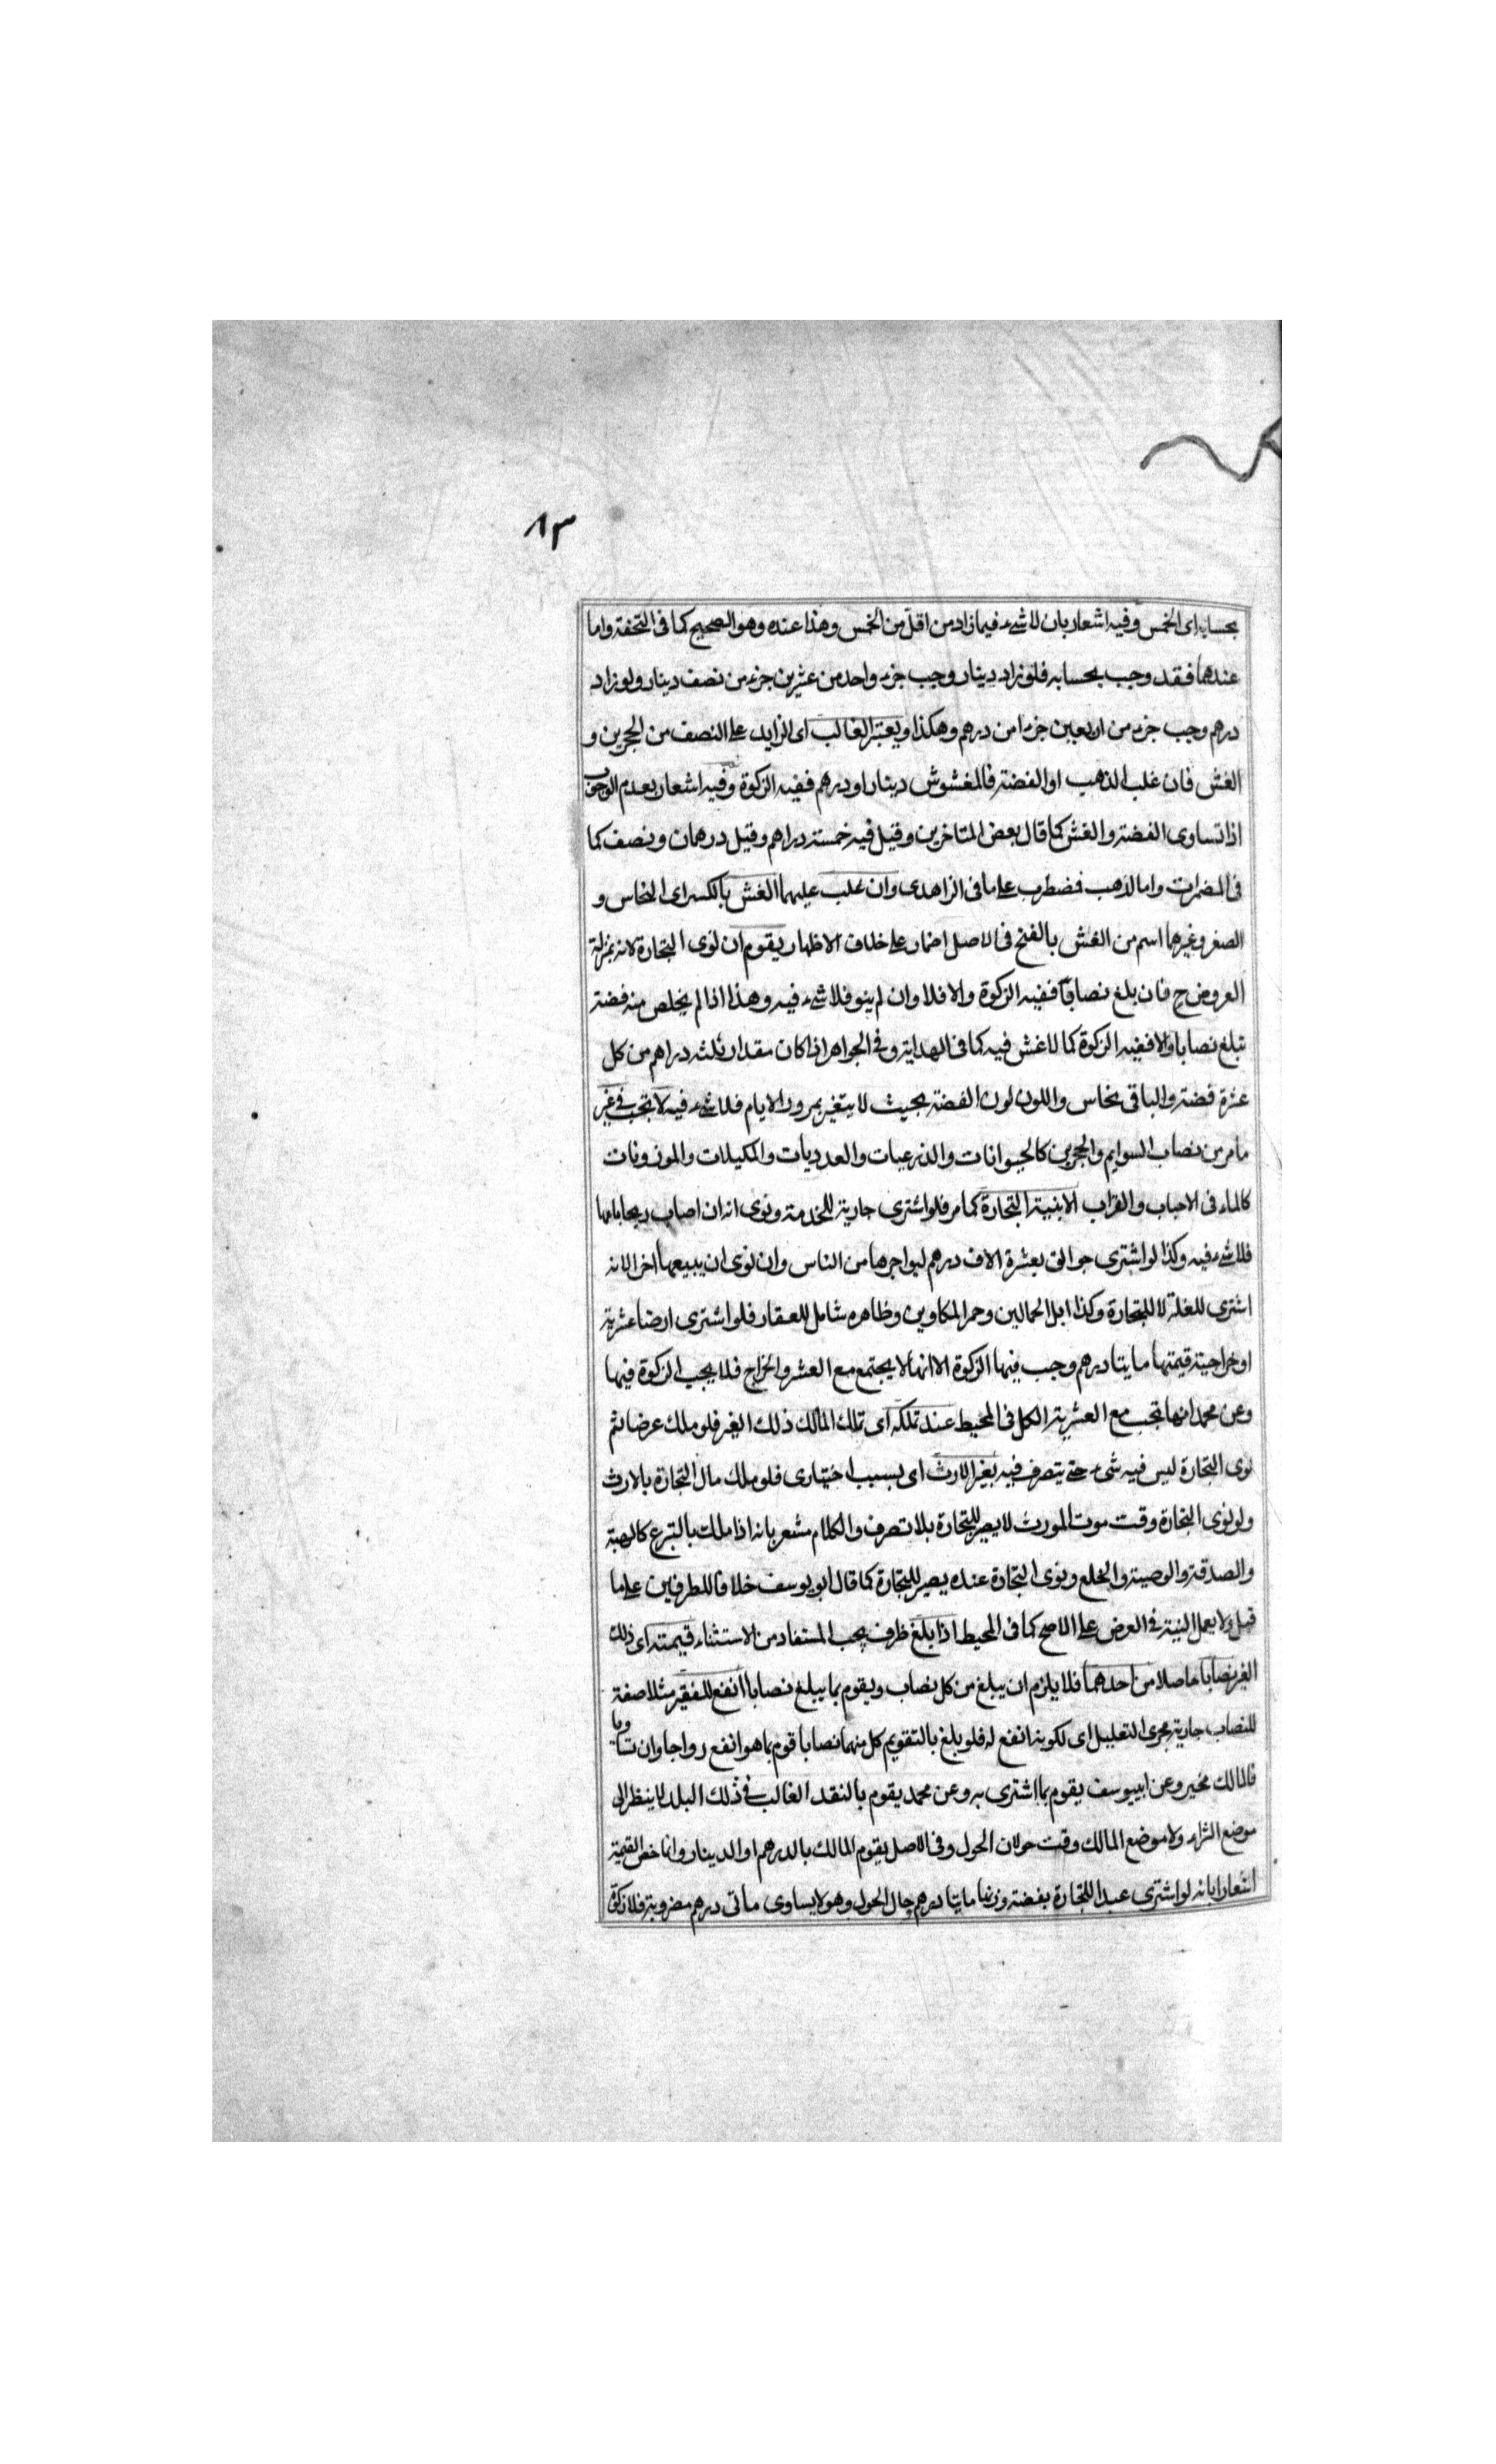 ٨٣
بحسابه اى الخمس وفيه اشعار بان لا شىء فيما زاد من اقل من الخمس وهذا عنده وهو الصحيح كما فى التحفة واما
عندهما فقد وجب بحسابه فلو زاد دينار وجب جزء واحد من عشرين جزء من نصف دينار ولو زاد
درهم وجب جزء من اربعين جزءا من درهم وهكذا ويعتبر الغالب اى الزايد على النصف من الحجرين و
الغش فان غلب الذهب او الفضة فالمغشوش دينار او درهم ففيه الزكوة وفيه اشعار بعدم الوجوب
اذا تساوى الفضة والغش كما قال بعض المتاخرين وقيل فيه خمسة دراهم وقيل درهمان ونصف كما
فى المضمرات واما الذهب فضطرب على ما فى الزاهدى وان غلب عليهما الغش بالكسر اى النحاس و
الصفر وغيرهما اسم من الغش بالفتح فى الاصل اضمار على خلاف الاظهار يقوم ان نوى التجارة لانه بمنزلة
العروض ح فان بلغ نصابا ففيه الزكوة والا فلا وان لم ينو فلا شىء فيه وهذا اذا لم يخلص منه فضة
تبلغ نصابا والا ففيه الزكوة كما لا غش فيه كما فى الهداية وفى الجواهر اذا كان مقدار ثلثه دراهم من كل
عشرة فضة والباقى نحاس واللون لون الفضة بحيث لا يتغير بمرور الايام فلا شىء فيه لا تجب فى غير
ما مر من نصاب السوايم والحجرين كالحيوانات والذرعيات والعدديات والمكيلات والموزونات
كالماء فى الاحباب والقراب الا بنية التجارة كما مر فلو اشترى جارية للخدمة ونوى انه ان اصاب ربحا باعها
فلا شىء فيه وكذا لو اشترى جوالق بعشرة الاف درهم ليواجرها من الناس وان نوى ان يبيعها اخرا لانه
اشترى للغلة لا للتجارة وكذا ابل الحمالين وحمر المكارين وظاهره شامل للعقار فلو اشترى ارضا عشرية
او خراجية قيمتها مايتا درهم وجب فيها الزكوة الا انها لا يجتمع مع العشر والخراج فلا يجب الزكوة فيها
وعن محمد انها تجب مع العشرية الكل فى المحيط عند تملكه اى تملك المالك ذلك الغير فلو ملك عرضا ثم
نوى التجارة ليس فيه شىء حتى يتصرف فيه بغير الارث اى بسبب اختيارى فلو ملك مال التجارة بالارث
ولو نوى التجارة وقت موت المورث لا يصير للتجارة بلا تصرف والكلام مشعر بانه اذا ملك بالتبرع كالهبة
والصدقة والوصية والخلع ونوى التجارة عنده يصير للتجارة كما قال ابو يوسف خلافا للطرفين على ما
قيل ولا يعمل النية فى العرض على الاصح كما فى المحيط اذا بلغ ظرف يجب المستفاد من الاستثناء قيمته اى ذلك
الغير نصابا حاصلا من احدهما فلا يلزم ان يبلغ من كل نصاب ويقوم بما يبلغ نصابا انفع للفقير مثلا صفة
للنصاب جارية مجرى التعليل اى لكونه انفع له فلو بلغ بالتقويم كل منهما نصابا قوم بما هو انفع رواجا وان تساويا
فالمالك مخير وعن ابييوسف يقوم بما اشترى به وعن محمد يقوم بالنقد الغالب فى ذلك البلد لا ينظر الى
موضع الشراء ولا موضع المالك وقت حولان الحول وفى الاصل يقوم المالك بالدرهم او الدينار وانما خص القيمة
اشعارا بانه لو اشترى عبدا للتجارة بفضة وزنها مايتا درهم حال الحول وهو لا يساوى مائى درهم مضروبة فلا زكوة